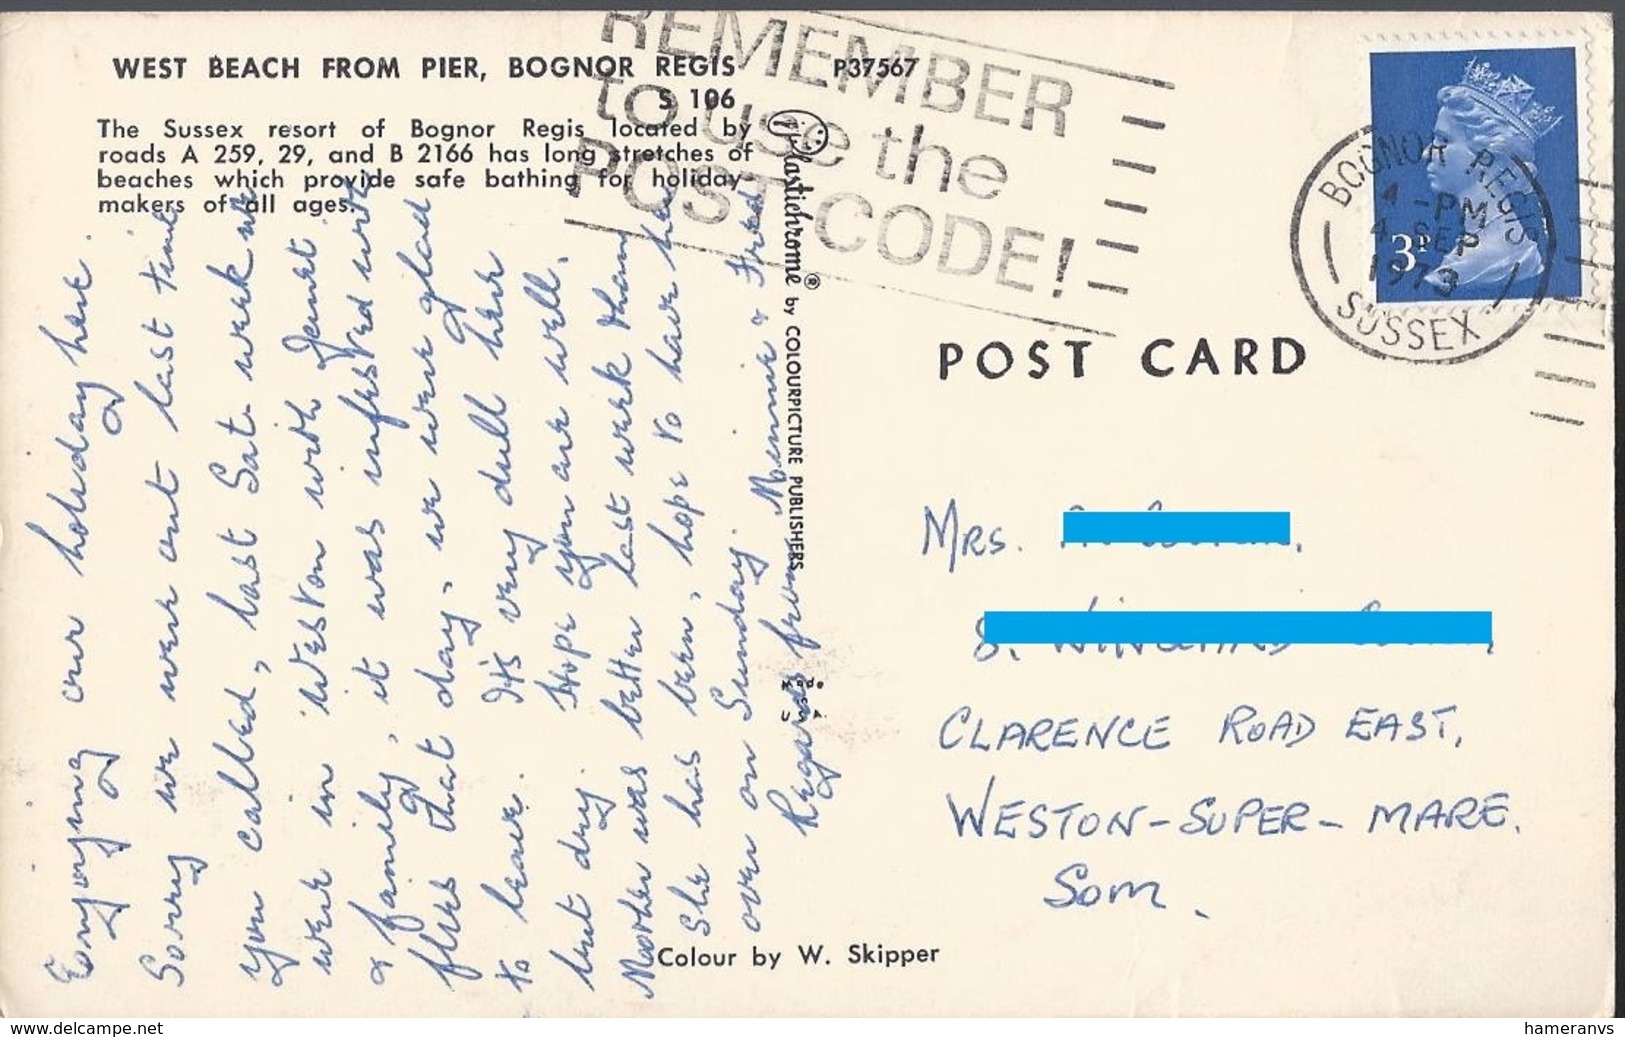 WEST BEACH FROM PIER, BOGNOR REGIS P37567
S 106
The Sussex resort of Bognor Regis located by
roads A 259, 29, and B 2166 has long stretches of
beaches which provide safe bathing for holiday
makers of all ages.
REMEMBER
to use the
POST CODE!
BOGNOR REGIS
4 -PM
4 SEP
1973
SUSSEX
3P
Plastichrome® by COLOURPICTURE PUBLISHERS
Made
U S A.
POST CARD
Enjoying our holiday here
Sorry we were out last time
you called, last Sat. week we
were in Weston with Janet
& family, it was infested with
flies that day, we were glad
to leave. It's very dull here
but dry. Hope you are well.
Mother was better last week than
She has been, hope to have her
over on Sunday.
Regards from Minnie & Fred
MRS.
8.
CLARENCE ROAD EAST,
WESTON-SUPER-MARE.
Som.
Colour by W. Skipper
www.delcampe.net
hameranvs